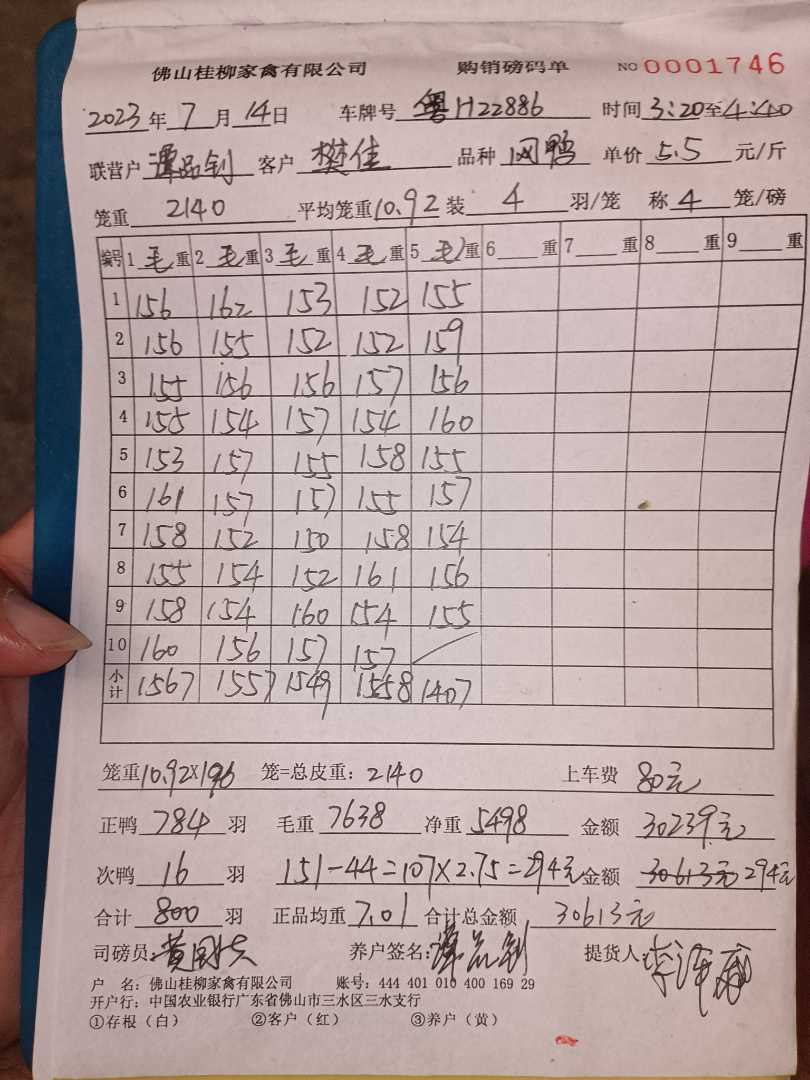 佛山桂柳家禽有限公司 购销磅码单 NO 0001746
2023年7月14日 车牌号 粤H22886 时间 3:20至4:40
联营户 谭品钊 客户 樊佳 品种 闪鸭 单价 5.5 元/斤
笼重 2140 平均笼重 10.92 装 4 羽/笼 称 4 笼/磅
编号 1 毛 重 2 毛 重 3 毛 重 4 毛 重 5 毛 重 6 重 7 重 8 重 9 重
1 156 162 153 152 155
2 156 155 152 152 159
3 155 156 156 157 156
4 155 154 157 154 160
5 153 157 155 158 155
6 161 157 157 155 157
7 158 152 150 158 154
8 155 154 152 161 156
9 158 154 160 154 155
10 160 156 157 157
小计 1567 1557 1549 1558 1407
笼重 10.92×196 笼=总皮重: 2140 上车费 80元
正鸭 784 羽 毛重 7638 净重 5498 金额 30239元
次鸭 16 羽 151-44=107×2.75=294元 金额 30613元 294元
合计 800 羽 正品均重 7.01 合计总金额 30613元
司磅员: 养户签名: 谭品钊 提货人:
户 名: 佛山桂柳家禽有限公司 账号: 444 401 010 400 169 29
开户行: 中国农业银行广东省佛山市三水区三水支行
①存根（白） ②客户（红） ③养户（黄）